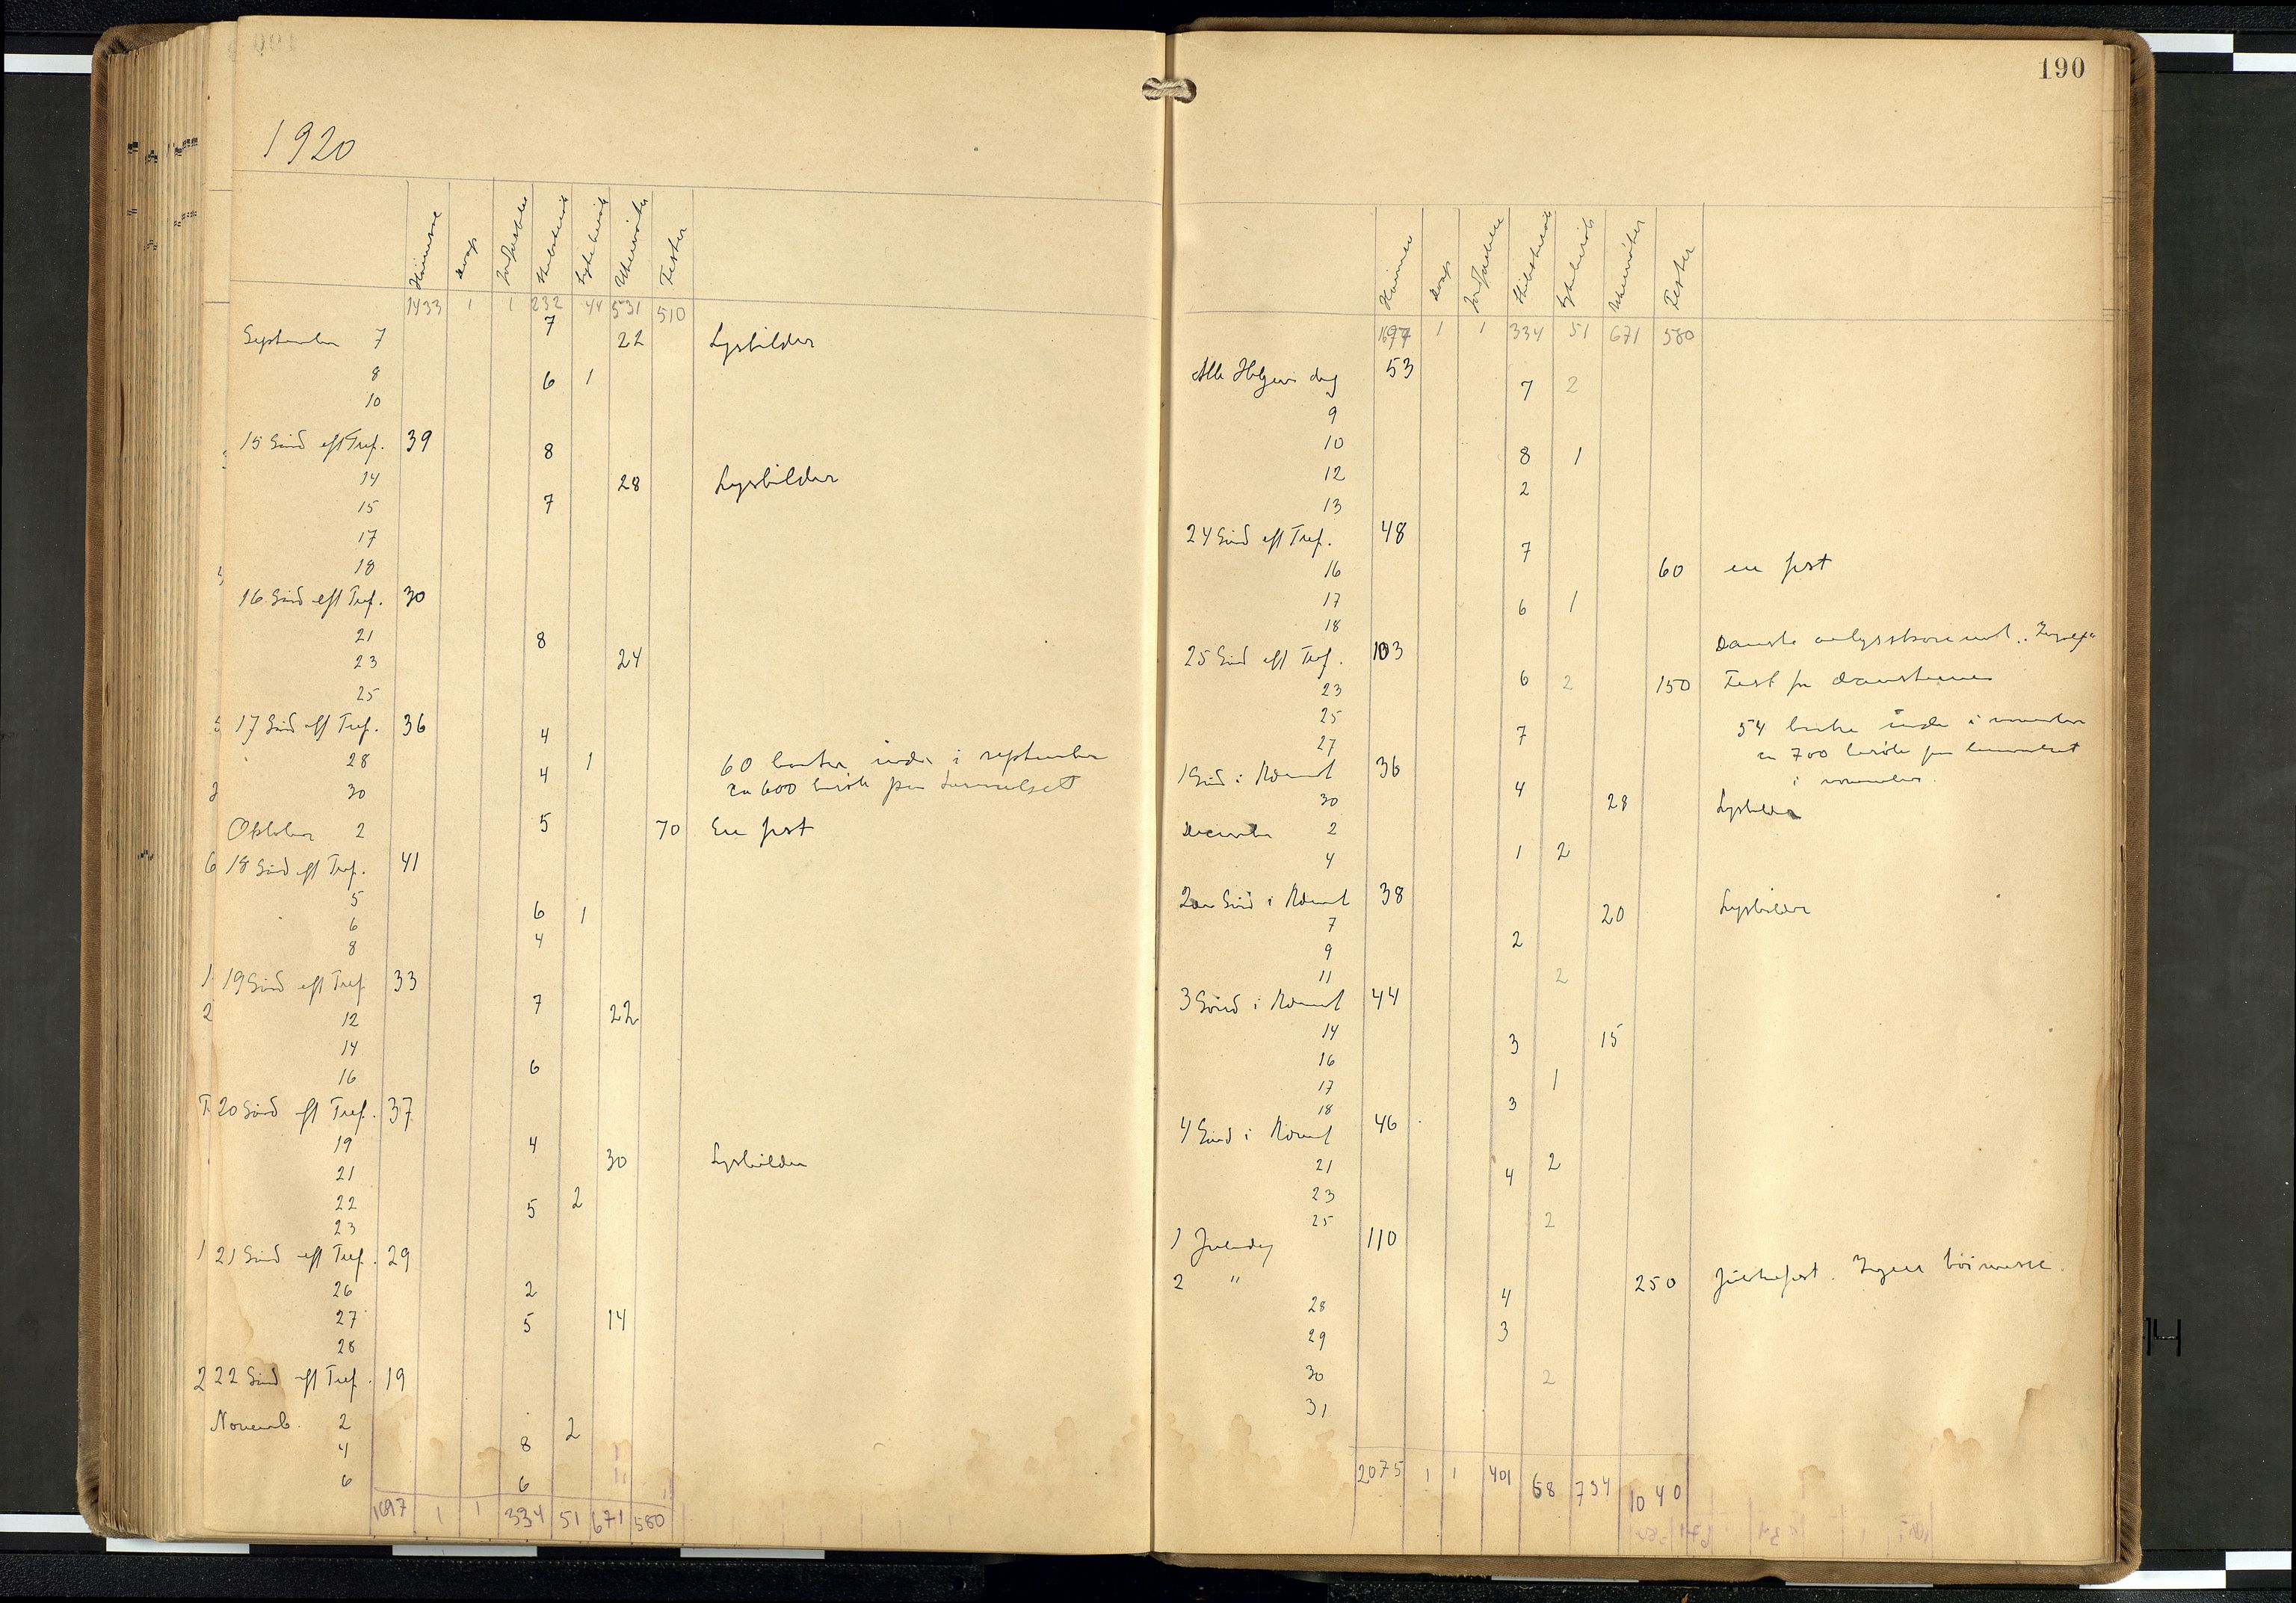 1920
Høimesse Daap Jordfæstelse Skibsbesøk Sykebesøk Ukemøter Fester
1433 1 1 232 44 531 510
September 7 7 22 Lysbilder
8 6 1
10
15 Sønd eft Tref. 39 8
14 28 Lysbilder
15 7
17
18
16 Sønd eft Tref. 30
21 8
23 24
25
17 Sønd eft Tref. 36 4
28 1 60 inde i september
30 4 ca 600 besøk paa læseværelset
Oktober 2 5 70 En fest
18 Sønd eft Tref. 41
5
6 6 1
8 4
19 Sønd eft Tref 33
12 7 22
14
16 6
20 Sønd eft Tref. 37
19 4
21 30 Lysbilder
22 5 2
23
21 Sønd eft Tref. 29
26 2
27 5 14
28
22 Sønd eft Tref. 19
Novemb. 2 2
4 8
6 6
1697 1 1 334 51 671 580
190
Høimesse Daap Jordfæstelse Skibsbesøk Sykebesøk Ukemøter Fester
1697 1 1 334 51 671 580
Alle Helgens dag 53 7 2
9
10 8 1
12 2
13
24 Sønd eft Tref. 48 7
16 60 en fest
17 6 1
18
25 Sønd eft Tref. 103 Danske
23 6 2 150 Fest for danskerne
25 54 inde i november
27 7 ca 700 besøk paa læseværelset
1 Sønd i Advent 36 4 i november.
30 28 Lysbilder
December 2
4 1 2
2den Sønd i Advent 38
7 20 Lysbilder
9 2
11 2
3 Sønd i Advent 44
14 3 15
16
17 1
18 3
4 Sønd i Advent 46
21 4 2
23
25 2
1 Juledag 110
2 " 250 Juletrefest. Ingen høimesse.
28 4
29 3
30 2
31
2075 1 1 401 68 734 1040